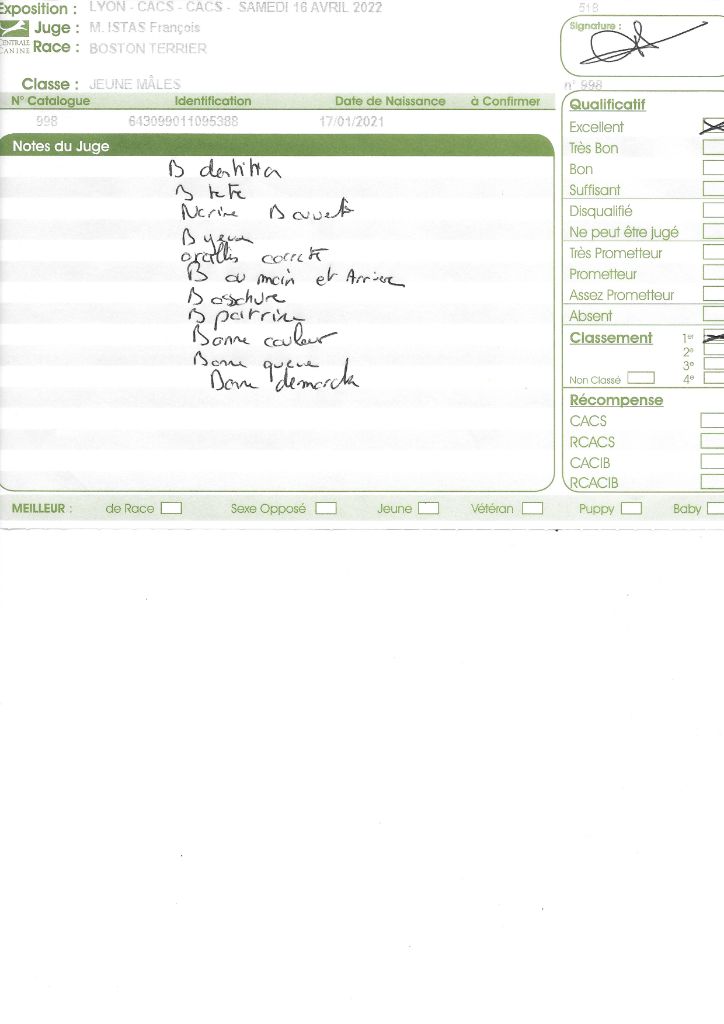 Exposition : LYON - CACS - CACS - SAMEDI 16 AVRIL 2022
518
CENTRALE CANINE
Juge : M. ISTAS François
Race : BOSTON TERRIER
Signature :
Classe : JEUNE MÂLES
n° 998
N° Catalogue Identification Date de Naissance à Confirmer
998 643099011095388 17/01/2021
Notes du Juge
B dentition
B tete
Narine B ouverte
B yeux
oreilles correcte
B av main et Arriere
B ossature
B poitrine
Bonne couleur
Bonne queue
Bonne demarche
Qualificatif
Excellent
Très Bon
Bon
Suffisant
Disqualifié
Ne peut être jugé
Très Prometteur
Prometteur
Assez Prometteur
Absent
Classement 1er
2e
3e
Non Classé 4e
Récompense
CACS
RCACS
CACIB
RCACIB
MEILLEUR : de Race Sexe Opposé Jeune Vétéran Puppy Baby